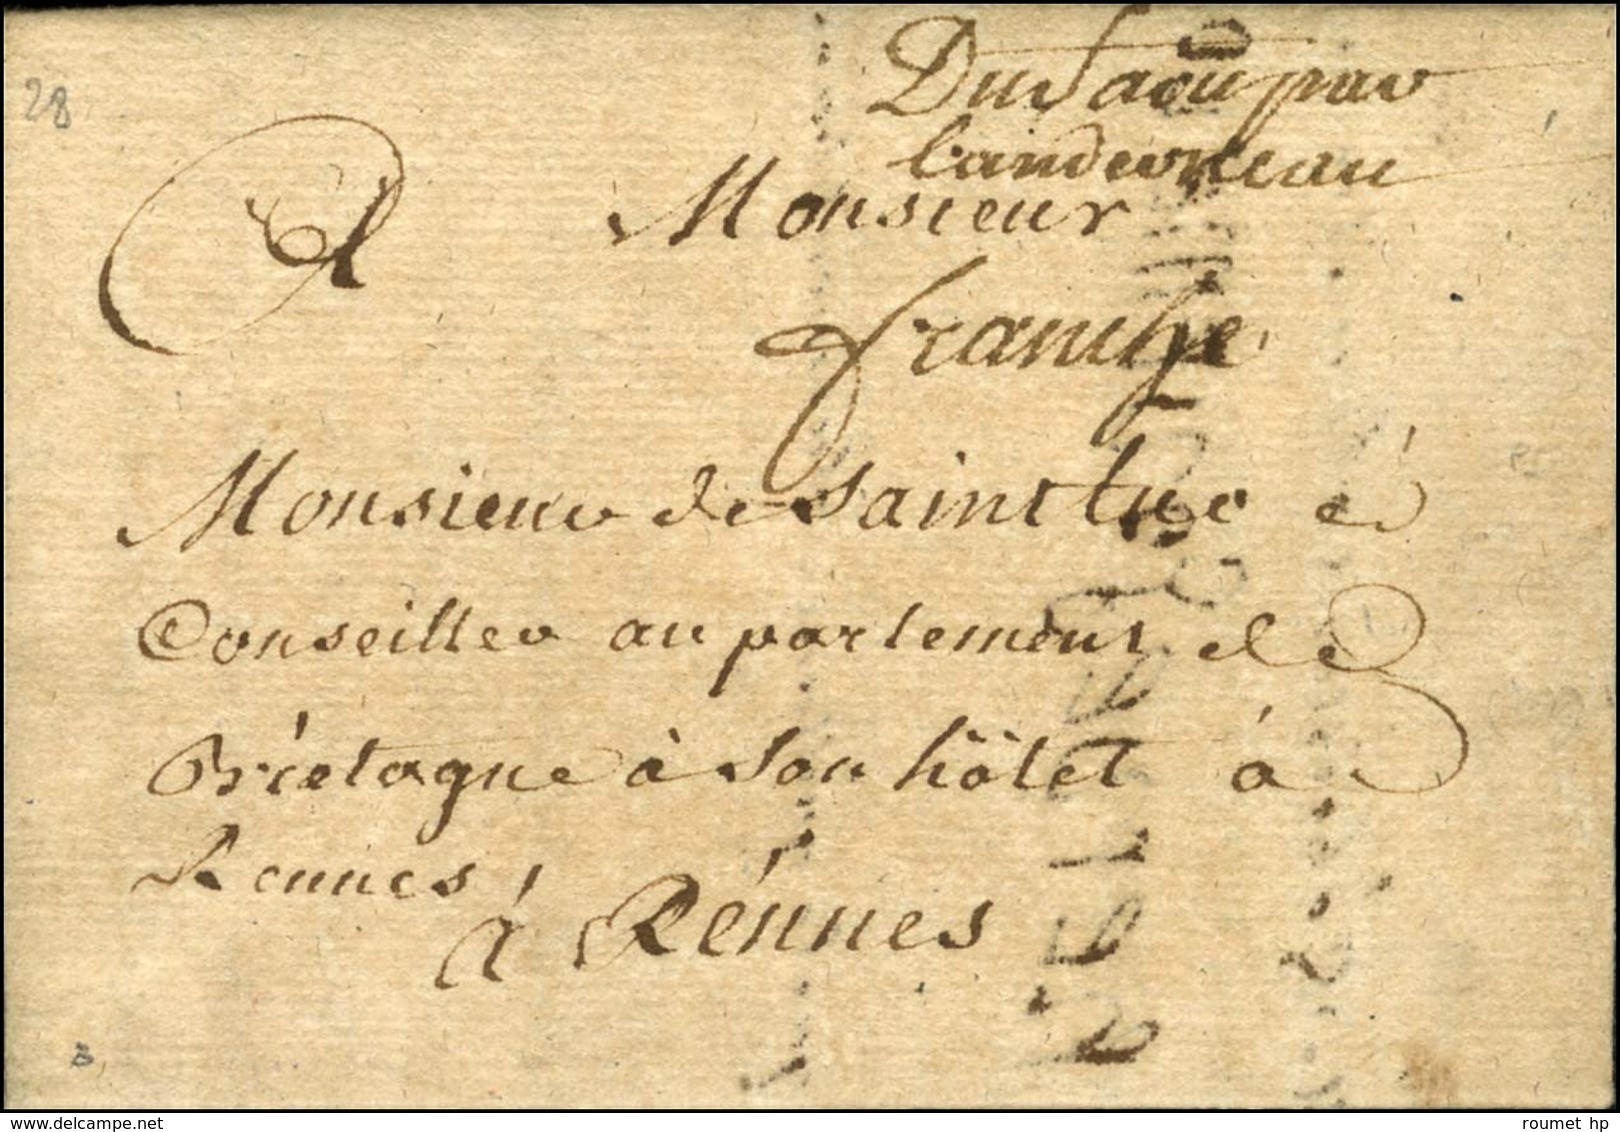 28
Du faou par
landerneau
A Monsieur
franche
Monsieur de saint luc
Conseiller au parlement de
Bretagne à son hôtel à
Rennes,
à Rénnes
www.delcampe.net
roumet hp